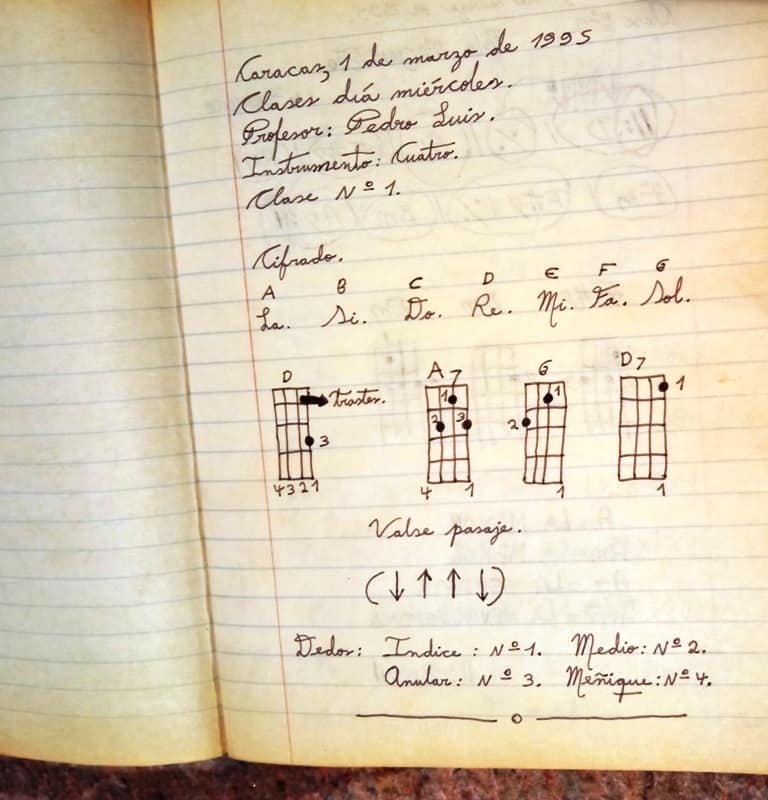 Caracas, 1 de marzo de 1995
Clases día miércoles.
Profesor: Pedro Luis.
Instrumento: Cuatro.
Clase Nº 1.
Cifrado.
A B C D E F G
La. Si. Do. Re. Mi. Fa. Sol.
D A7 G D7
trastes.
1 1 1
2 3 2
3
4 3 2 1 4 1 1 1
Valse pasaje.
(↓ ↑ ↑ ↓)
Dedos: Indice: Nº 1. Medio: Nº 2.
Anular: Nº 3. Meñique: Nº 4.